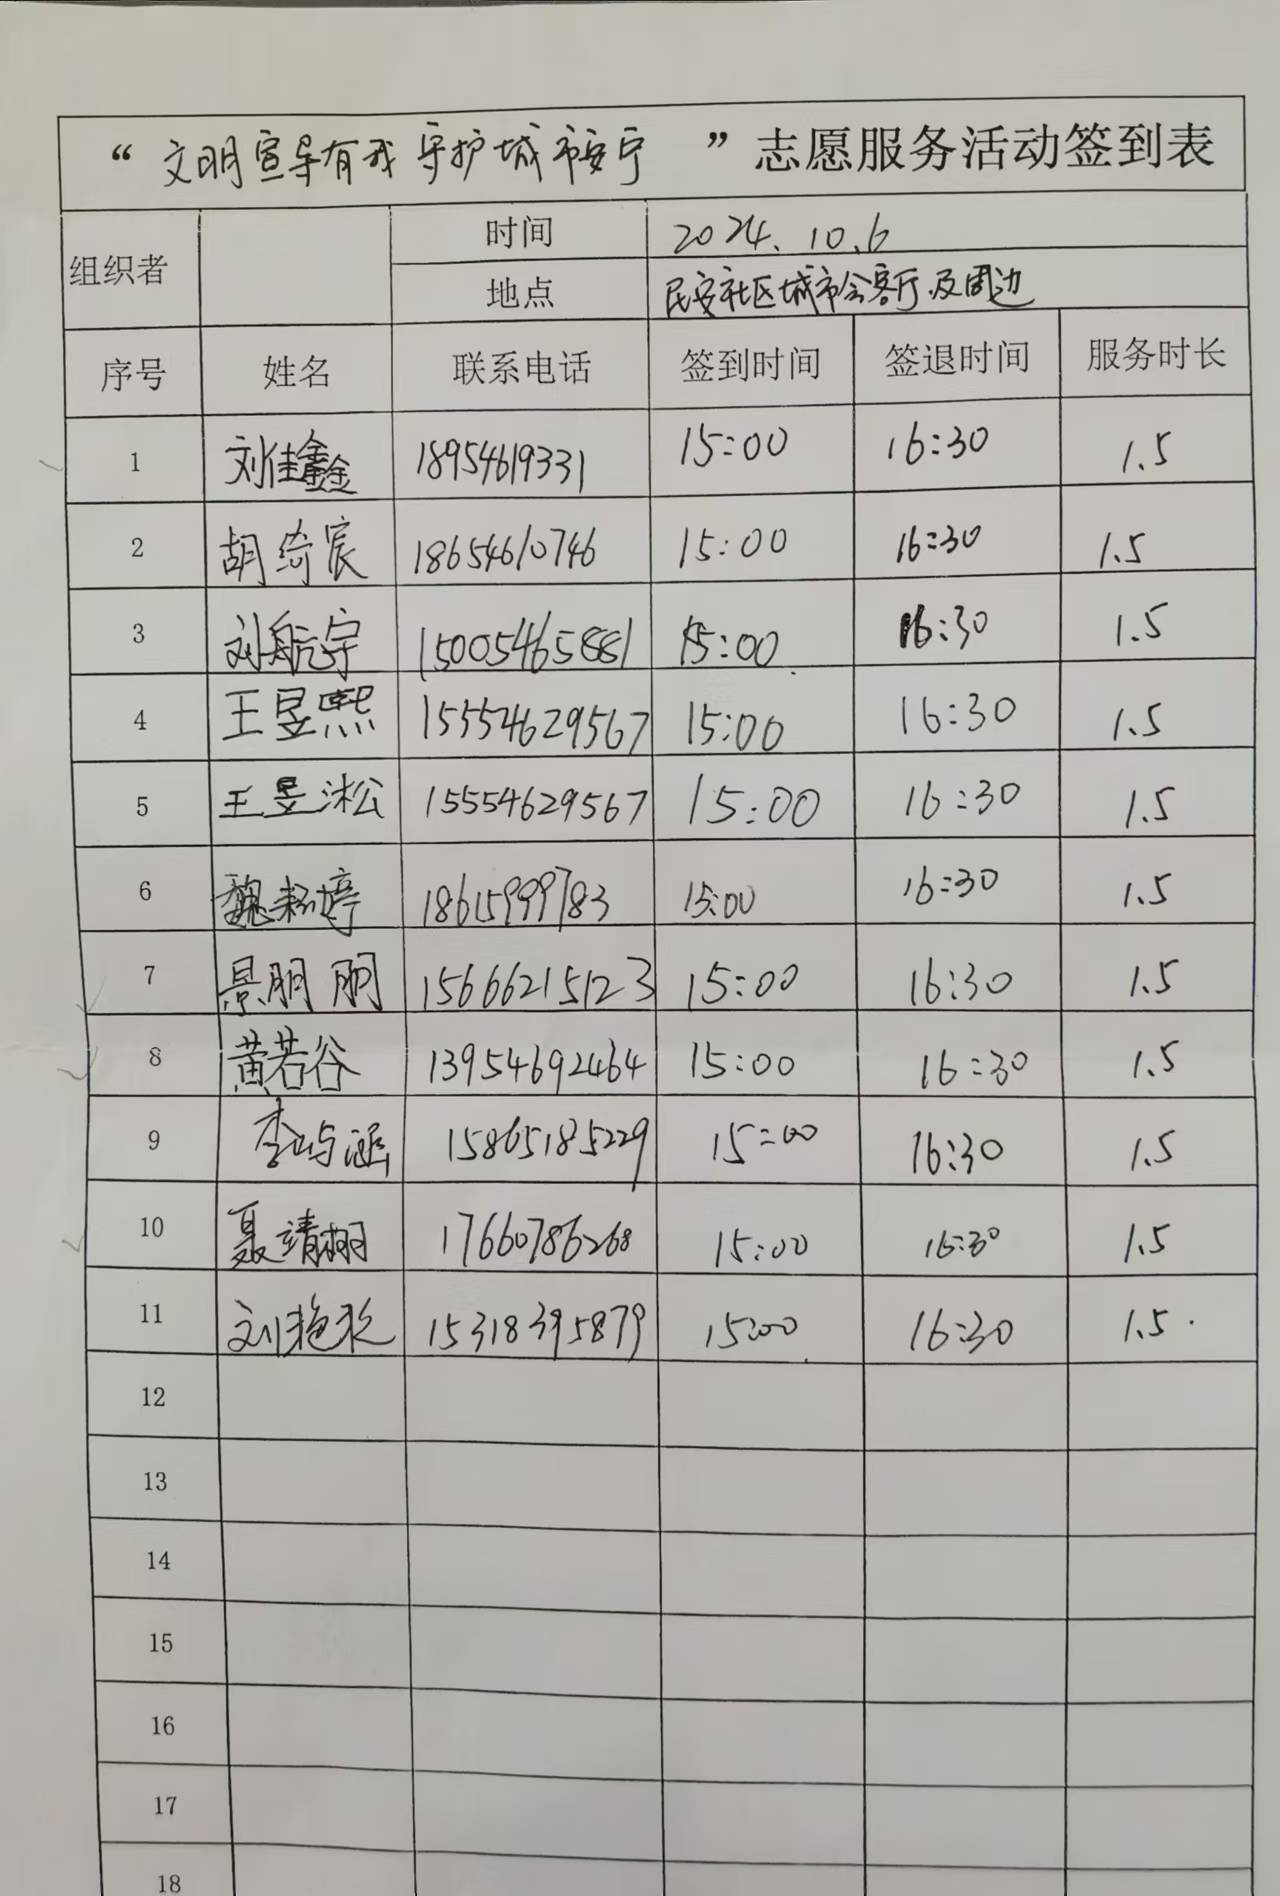 “文明宣导有我 守护城市安宁”志愿服务活动签到表
组织者 时间 2024.10.6
地点 民安社区城市会客厅及周边
序号 姓名 联系电话 签到时间 签退时间 服务时长
1 刘佳鑫 18954619331 15:00 16:30 1.5
2 胡绮宸 18654610746 15:00 16:30 1.5
3 刘航宇 15005465881 15:00 16:30 1.5
4 王昱熙 15554629567 15:00 16:30 1.5
5 王昱淞 15554629567 15:00 16:30 1.5
6 魏 婷 18615999783 15:00 16:30 1.5
7 景朋朋 15666215123 15:00 16:30 1.5
8 黄若谷 13954692464 15:00 16:30 1.5
9 李屿涵 15865185229 15:00 16:30 1.5
10 聂靖栩 17660786268 15:00 16:30 1.5
11 刘艳 15318395879 15:00 16:30 1.5
12
13
14
15
16
17
18